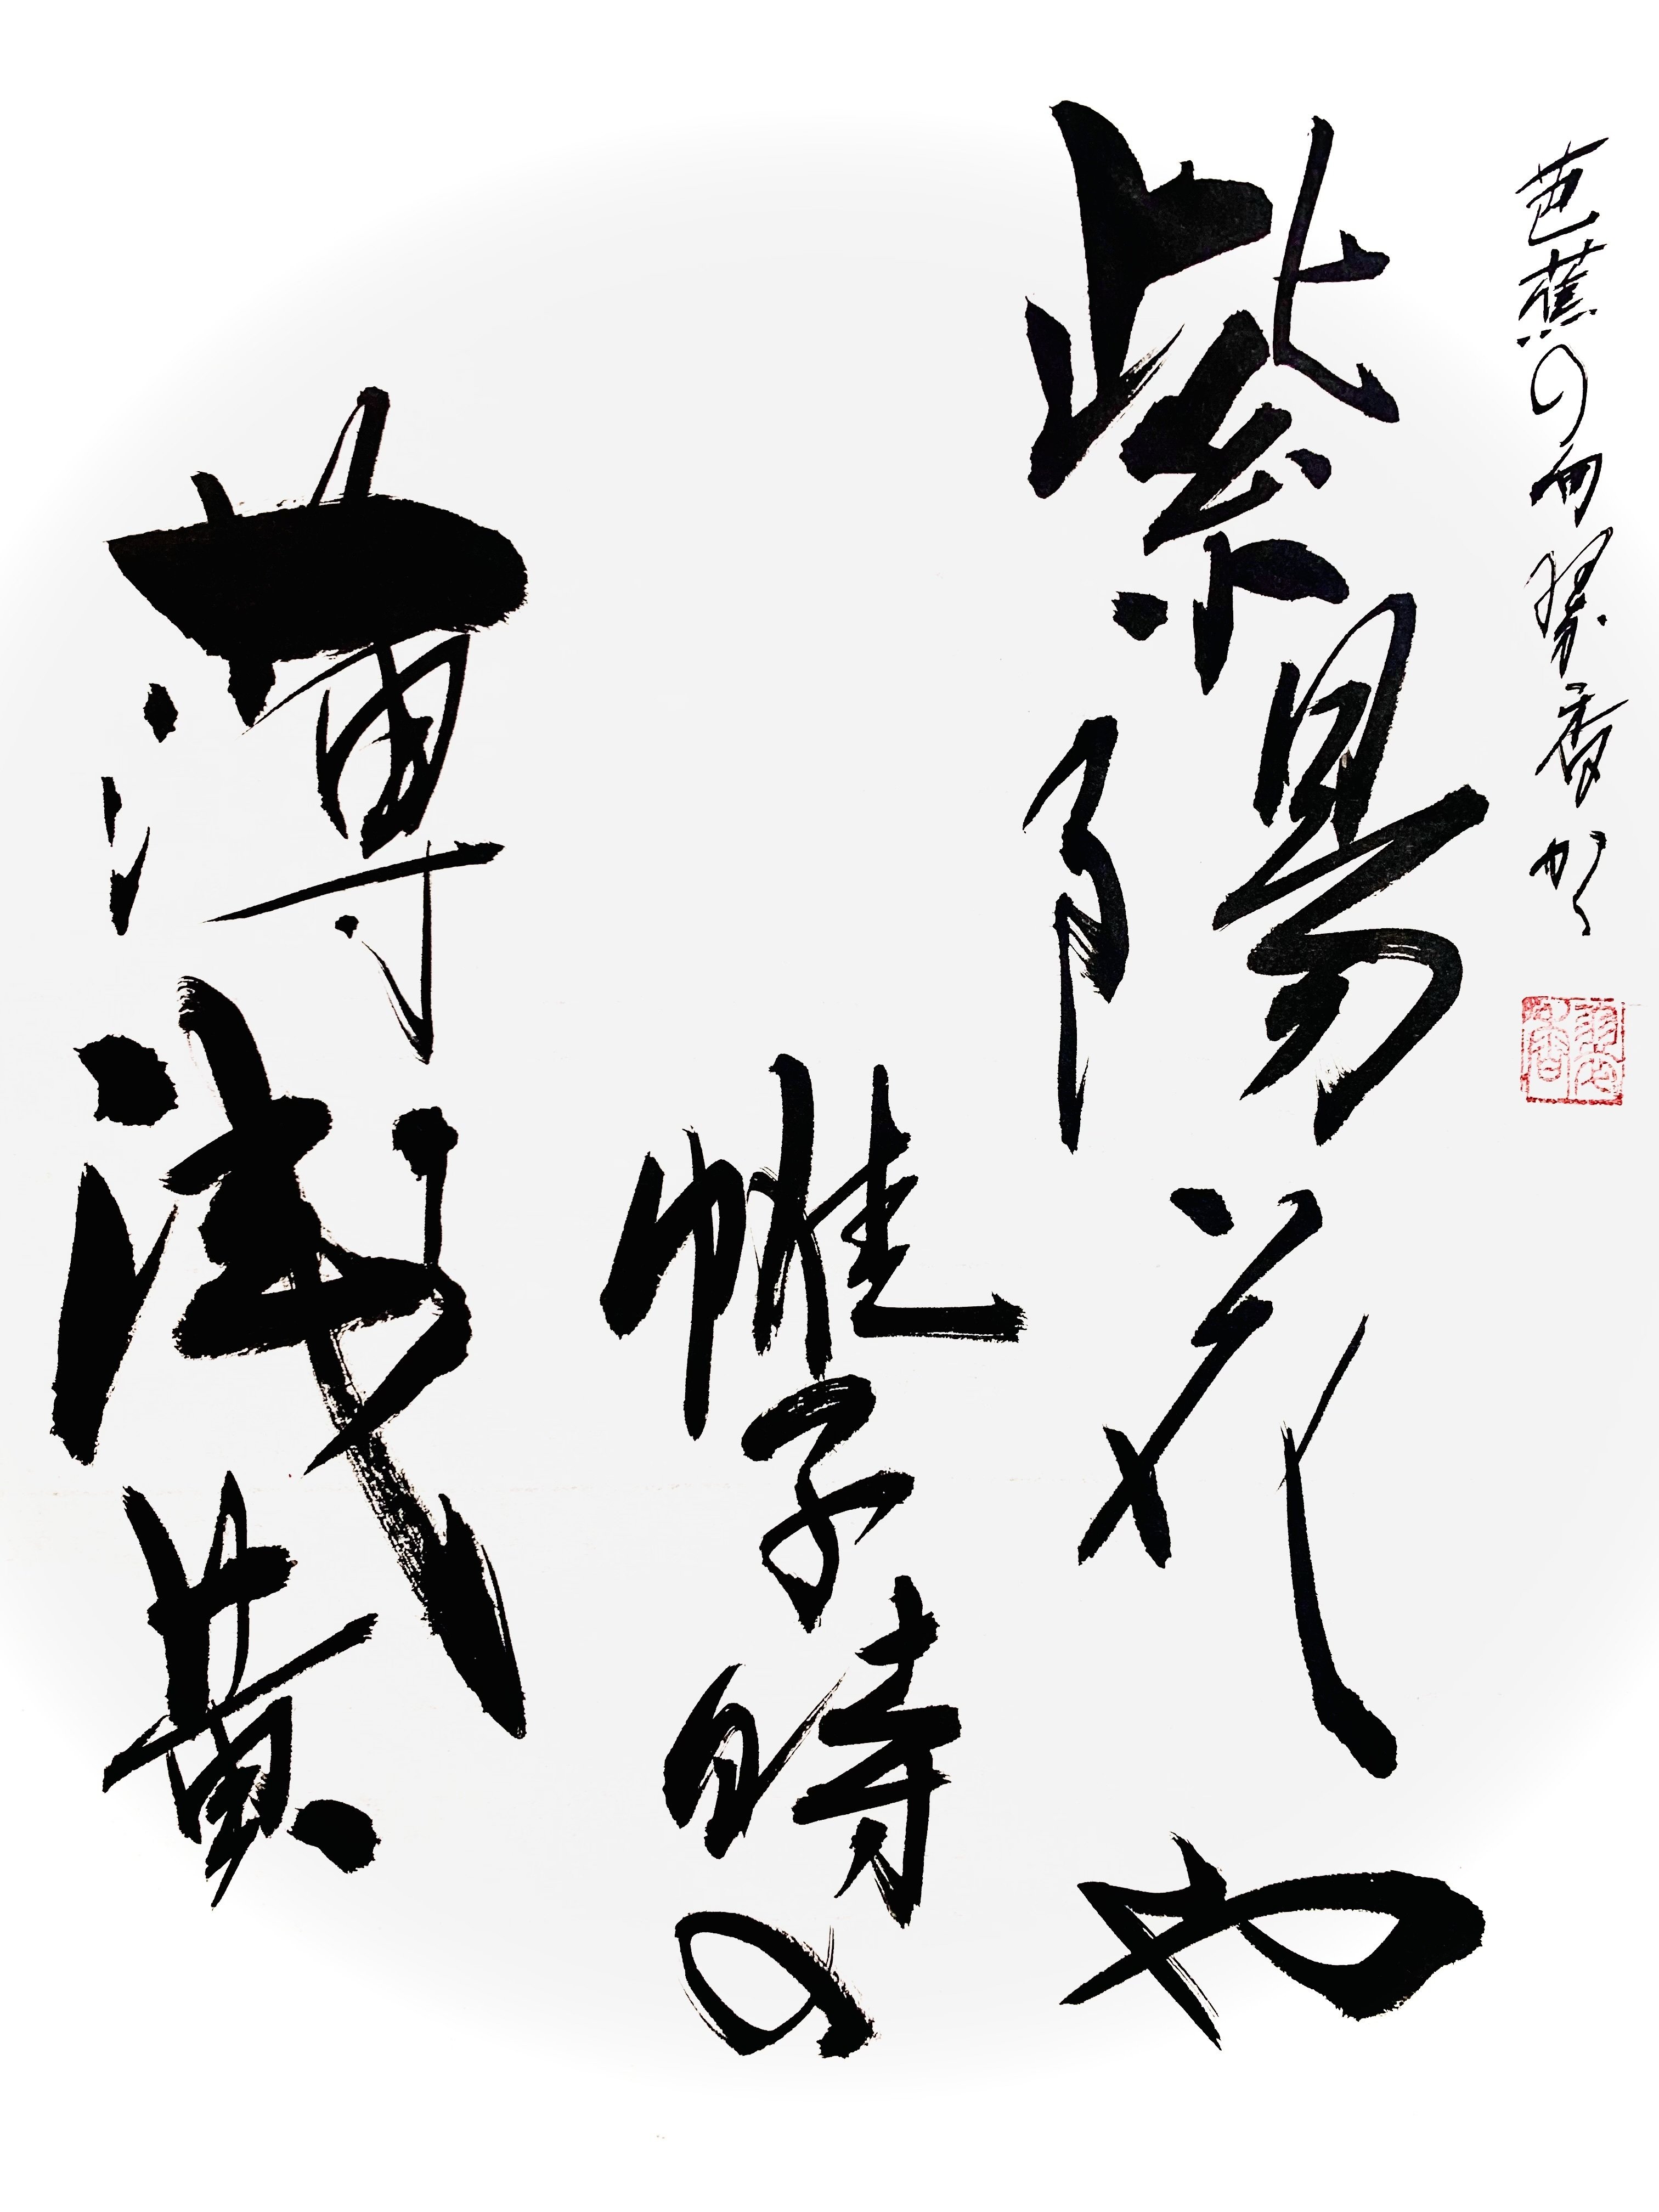 芭蕉の句 翠香かく
紫陽花や
帷子時の
薄浅黄